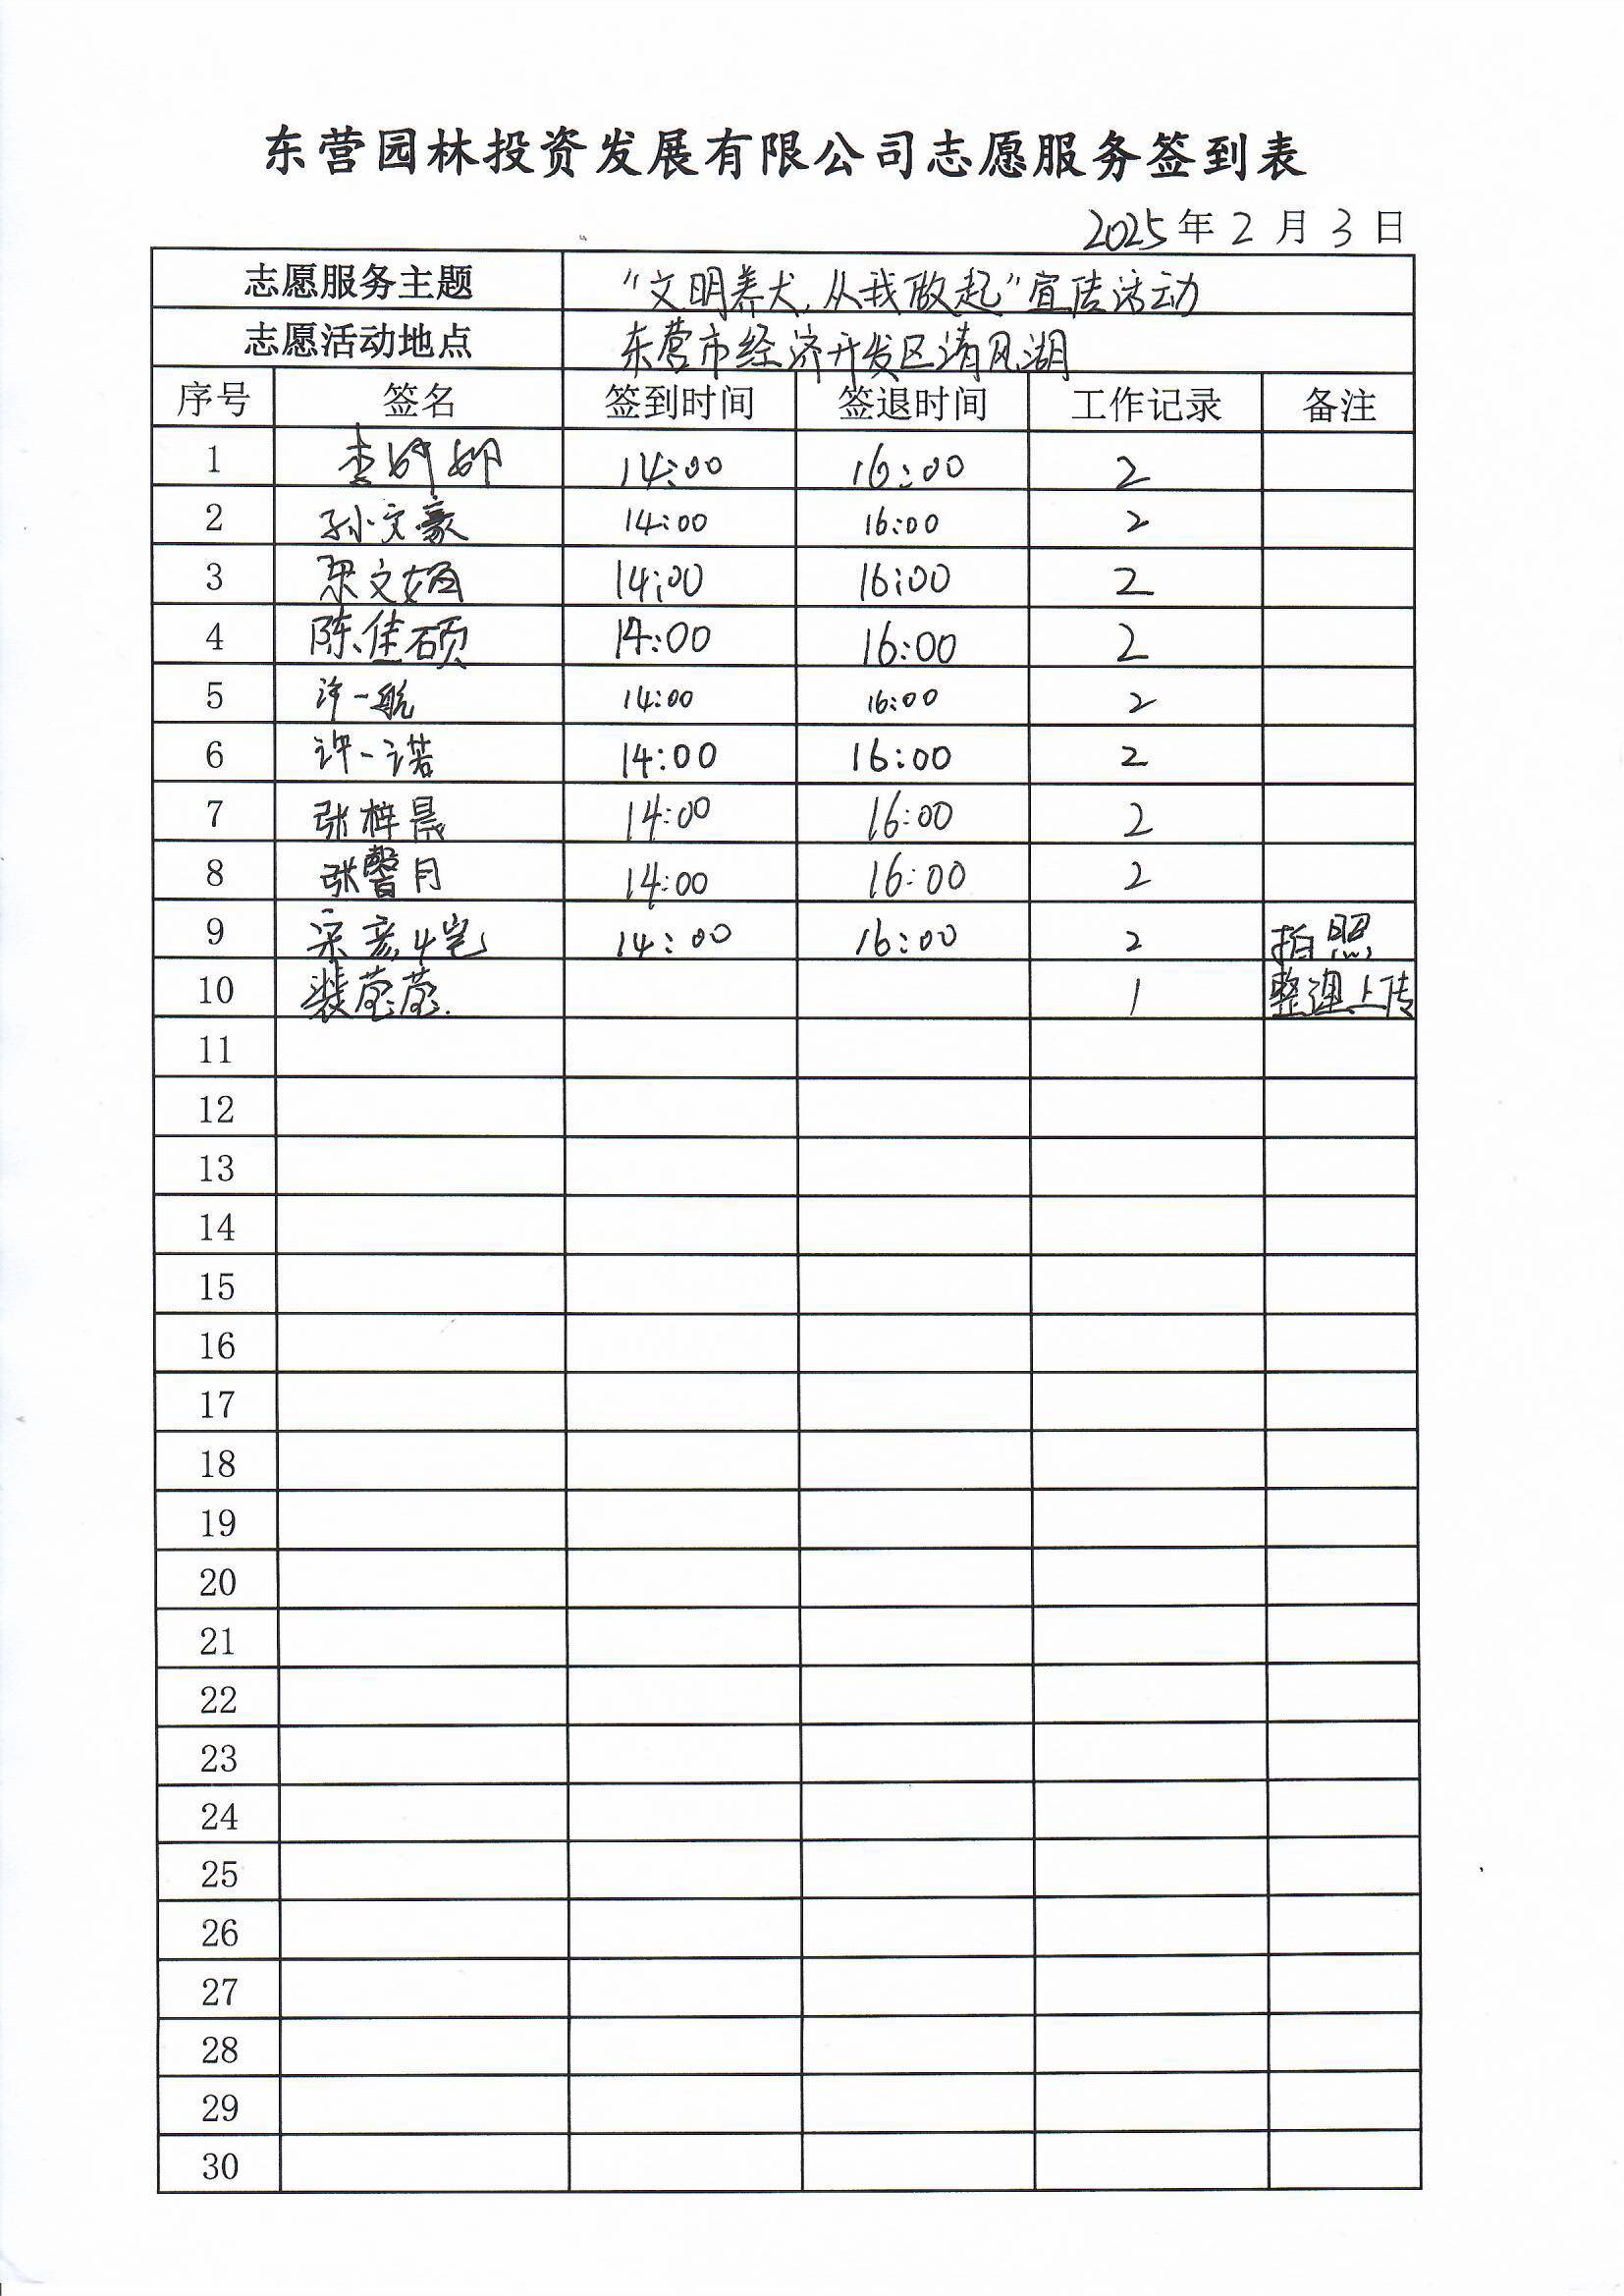 东营园林投资发展有限公司志愿服务签到表
2025年2月3日
志愿服务主题 “文明养犬,从我做起”宣传活动
志愿活动地点 东营市经济开发区清风湖
序号 签名 签到时间 签退时间 工作记录 备注
1 李婷婷 14:00 16:00 2
2 孙文豪 14:00 16:00 2
3 文 14:00 16:00 2
4 陈佳硕 14:00 16:00 2
5 许一航 14:00 16:00 2
6 许一诺 14:00 16:00 2
7 张梓晨 14:00 16:00 2
8 张馨月 14:00 16:00 2
9 宋彦 14:00 16:00 2 拍照
10 裴莹莹 1 整理上传
11
12
13
14
15
16
17
18
19
20
21
22
23
24
25
26
27
28
29
30